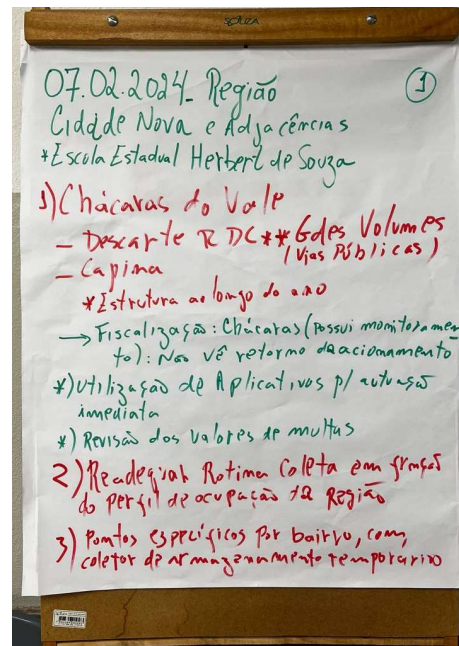 SOUZA
07.02.2024_ Região
1
Cidade Nova e Adjacências
*Escola Estadual Herbert de Souza
1) Chácaras do Vale
- Descarte RDC ** Gdes Volumes
(Vias Públicas)
- Capina
*Estrutura ao longo do ano
→ Fiscalização: Chácaras (Possui monitoramen
to): Não vê retorno do acionamento
*) Utilização de Aplicativos p/ autuação
imediata
*) Revisão dos valores de multas
2) Readequar Rotina Coleta em função
do perfil de ocupação da Região
3) Pontos específicos por bairro, com,
coletor de armazenamento temporário